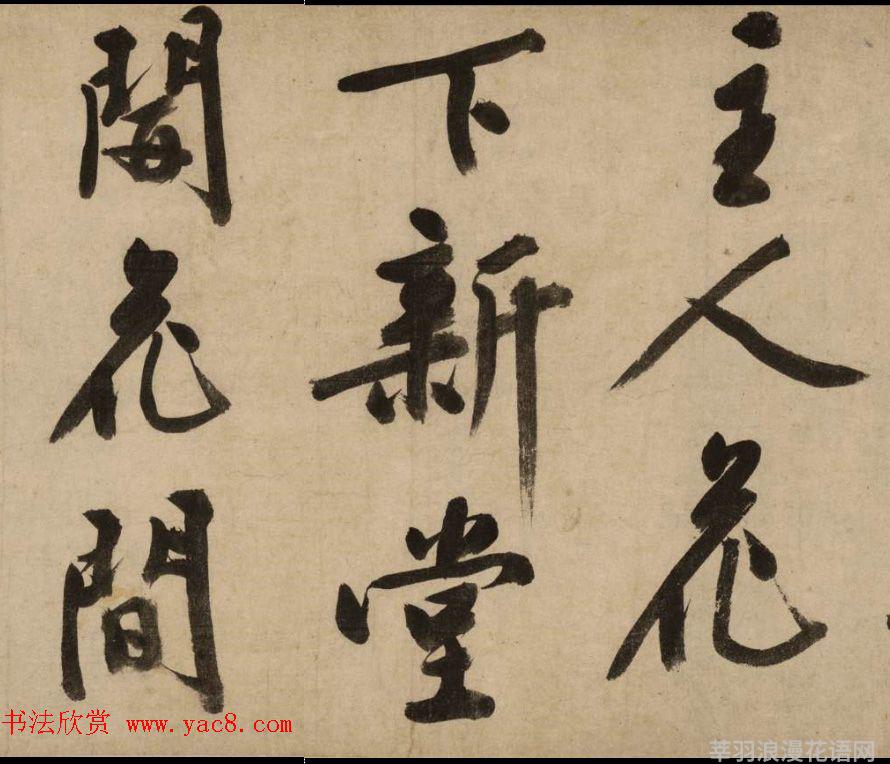 主人花
下新堂
開花間
书法欣赏 www.yac8.com
莘羽浪漫花语网